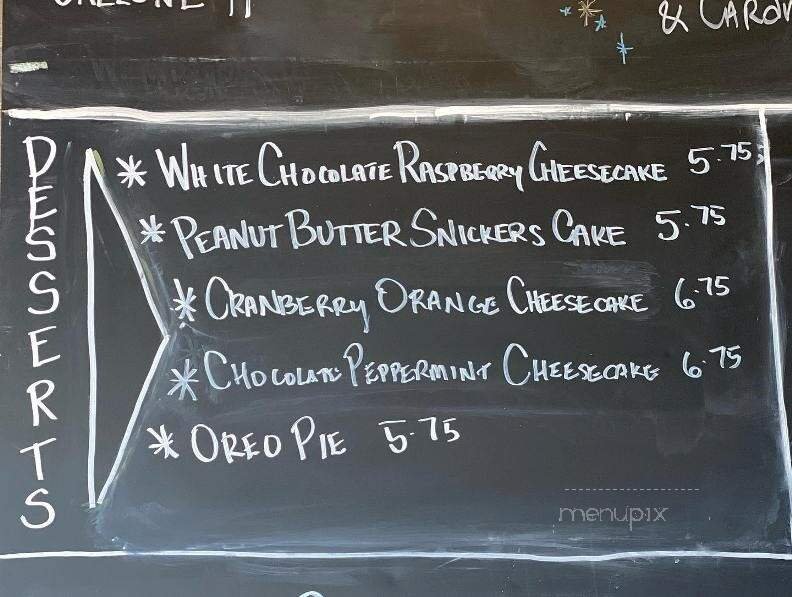 & CARDA
DESSERTS
* WHITE CHOCOLATE RASPBERRY CHEESECAKE 5.75
* PEANUT BUTTER SNICKERS CAKE 5.75
* CRANBERRY ORANGE CHEESECAKE 6.75
* CHOCOLATE PEPPERMINT CHEESECAKE 6.75
* OREO PIE 5.75
menupix